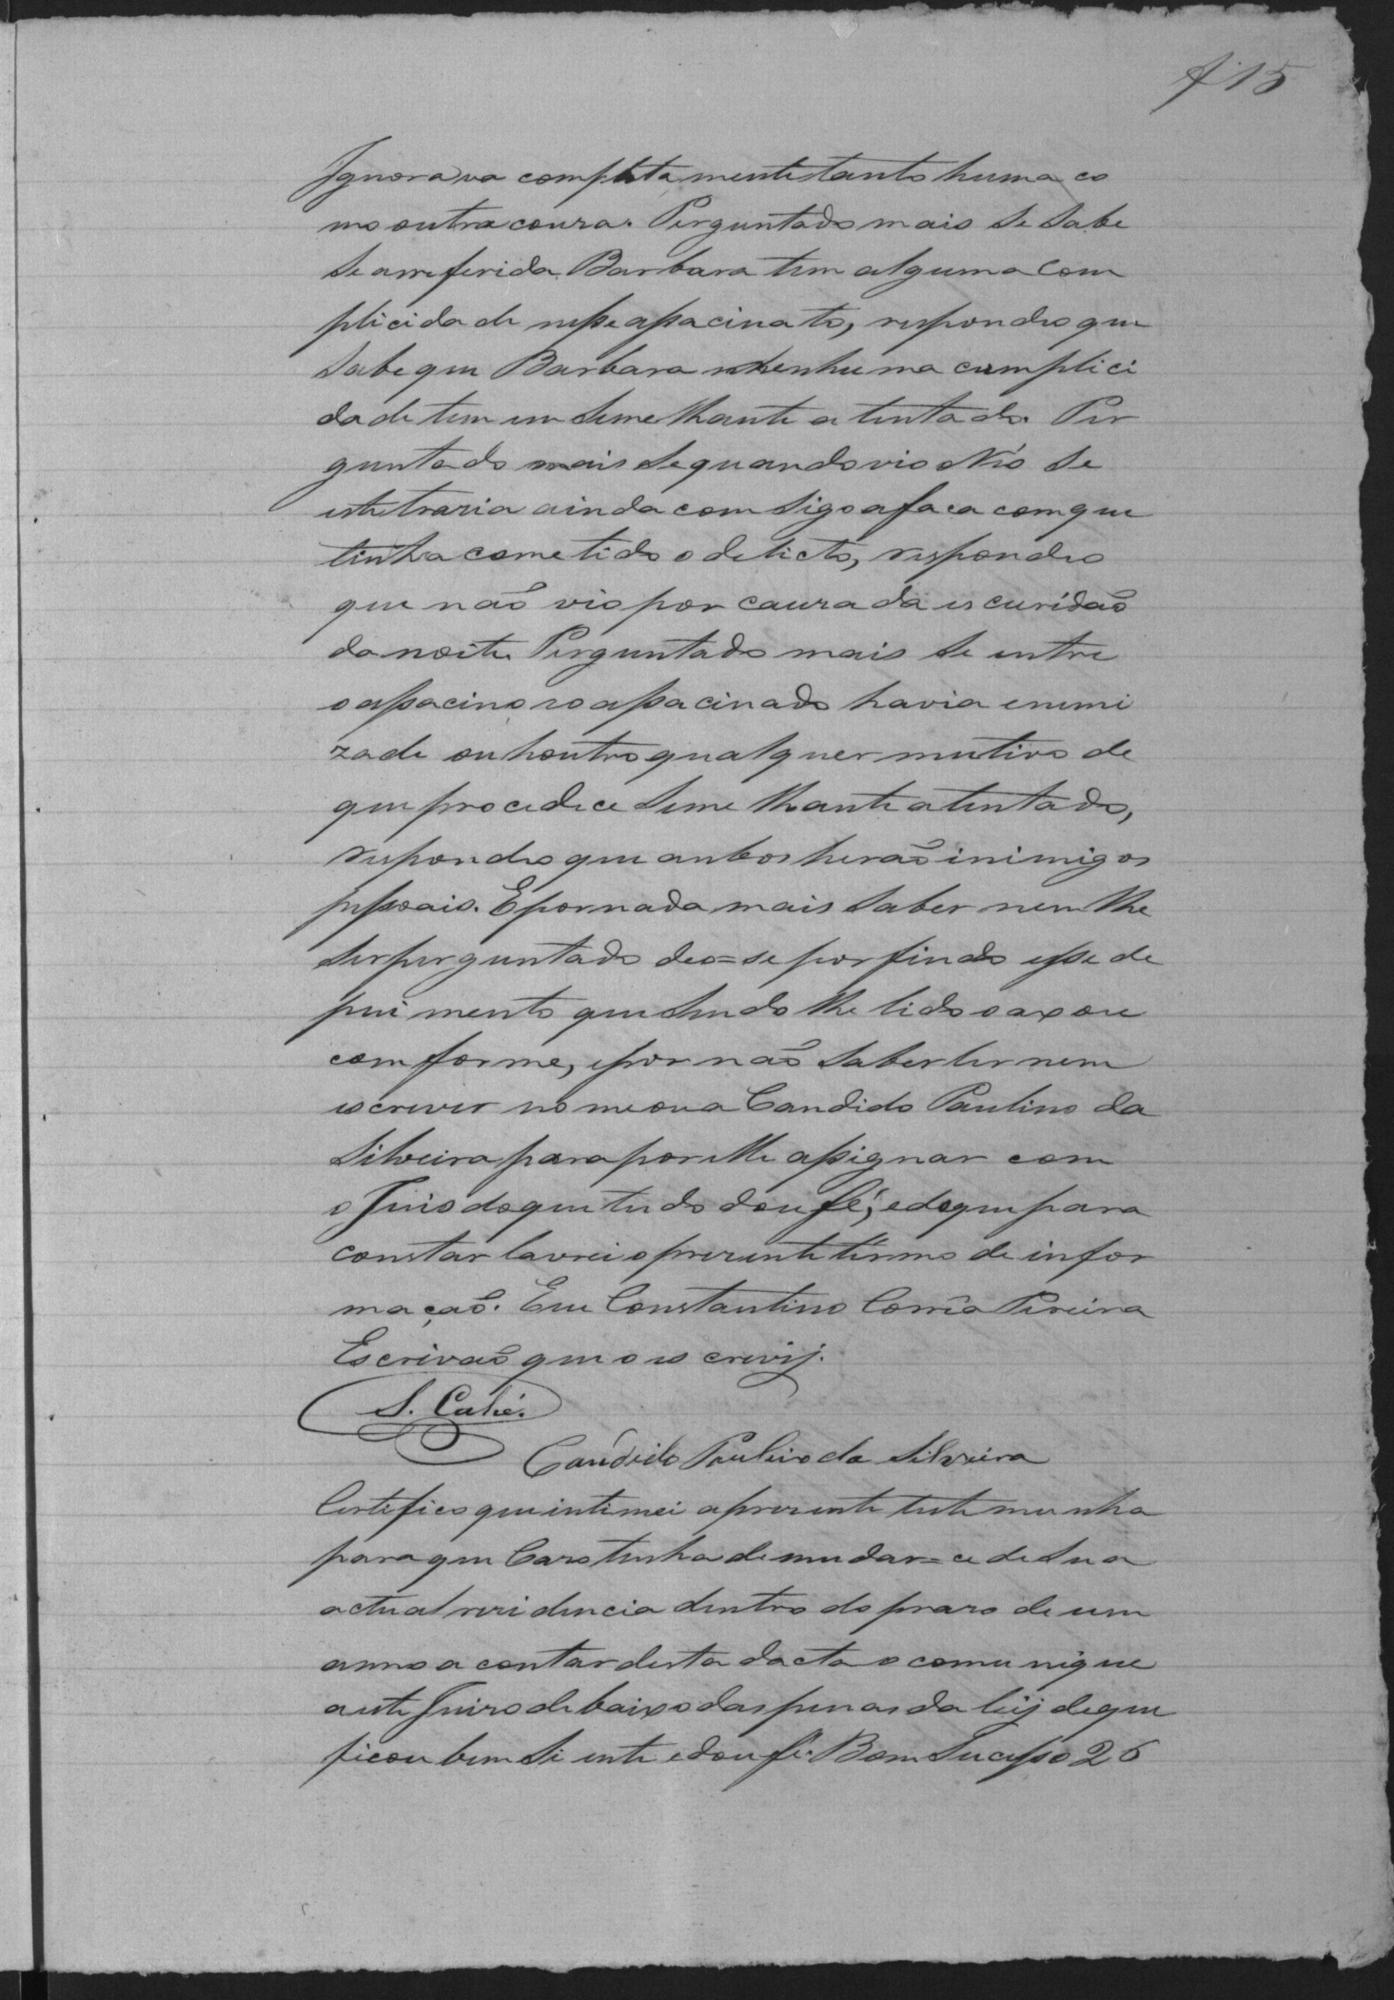 f 15
Ignorava completamente tanto huma co
mo outra couza. Perguntado mais se sabe
se arreferida Barbara tem alguma com
plicidade nesse assacinato, respondeo que
sabe que Barbara nhenhuma cumplici
dade tem em semelhante atentado. Per
guntado mais se quando vio Nio se
este traria ainda comsigo a faca com que
tinha cometido o delicto, respondeo
que não vio por cauza da escuridão
da noite. Perguntado mais se entre
o assacino e o assacinado havia enemi
zade ou houtro qualquer mutivo de
que procedece semelhante atentado,
respondeo que anbos herão inimigos
pessoais. E por nada mais saber nem lhe
ser perguntado deo=se por findo esse de
puimento que sendo lhe lido o axou
comforme, e por não saber ler nem
escrever nomeou a Candido Paulino da
Silveira para por elle assignar com
o Juis do que tudo dou fé, e do que para
constar lavrei o prezente têrmo de infor
mação. Eu Constantino Corrêa Pereira
Escrivão que o escrevij.
S. Calié.
Candido Paulino da Silveira
Certifico que intimei a prezente testemunha
para que Cazo tenha de mudar=ce de sua
actual rezidencia dentro do prazo de um
anno a contar desta dacta o comunique
a este Juizo debaixo das penas da leij de que
ficou bem siente e dou fé. Bom Sucesso 26